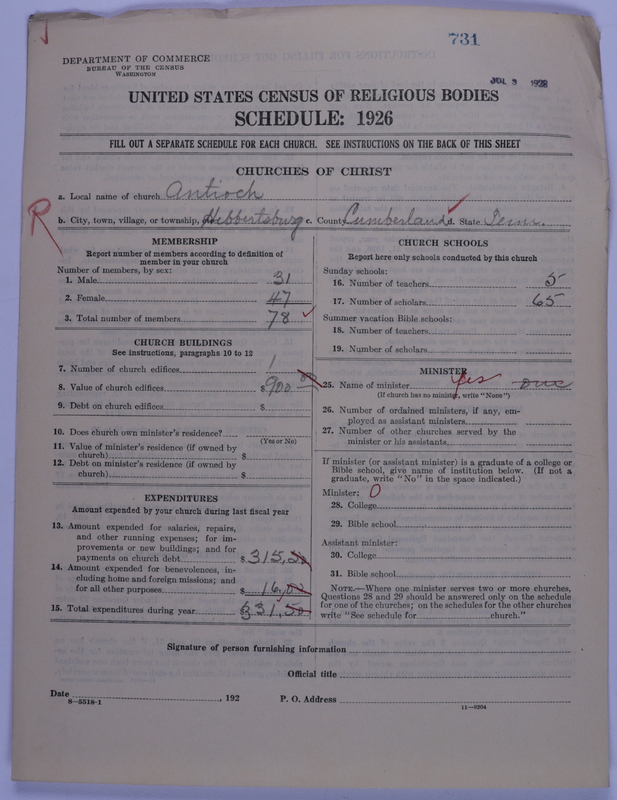 731
DEPARTMENT OF COMMERCE
BUREAU OF THE CENSUS
WASHINGTON
JUL 3 1928
UNITED STATES CENSUS OF RELIGIOUS BODIES
SCHEDULE: 1926
FILL OUT A SEPARATE SCHEDULE FOR EACH CHURCH. SEE INSTRUCTIONS ON THE BACK OF THIS SHEET
CHURCHES OF CHRIST
a. Local name of church Antioch
R
b. City, town, village, or township, Hebbertsburg c. County Cumberland d. State Tenn.
MEMBERSHIP
Report number of members according to definition of
member in your church
Number of members, by sex:
1. Male 31
2. Female 47
3. Total number of members 78
CHURCH BUILDINGS
See instructions, paragraphs 10 to 12
7. Number of church edifices 1
8. Value of church edifices $900.00
9. Debt on church edifices $
10. Does church own minister's residence?
(Yes or No)
11. Value of minister's residence (if owned by
church) $
12. Debt on minister's residence (if owned by
church) $
EXPENDITURES
Amount expended by your church during last fiscal year
13. Amount expended for salaries, repairs,
and other running expenses; for im-
provements or new buildings; and for
payments on church debt $315.50
14. Amount expended for benevolences, in-
cluding home and foreign missions; and
for all other purposes $16.00
15. Total expenditures during year $331.50
CHURCH SCHOOLS
Report here only schools conducted by this church
Sunday schools:
16. Number of teachers 5
17. Number of scholars 65
Summer vacation Bible schools:
18. Number of teachers
19. Number of scholars
MINISTER
25. Name of minister yes one
(If church has no minister, write "None")
26. Number of ordained ministers, if any, em-
ployed as assistant ministers
27. Number of other churches served by the
minister or his assistants
If minister (or assistant minister) is a graduate of a college or
Bible school, give name of institution below. (If not a
graduate, write "No" in the space indicated.)
Minister: 0
28. College
29. Bible school
Assistant minister:
30. College
31. Bible school
NOTE.—Where one minister serves two or more churches,
Questions 28 and 29 should be answered only on the schedule
for one of the churches; on the schedules for the other churches
write "See schedule for church."
Signature of person furnishing information
Official title
Date , 192 P. O. Address
8—5518-1
11—9204